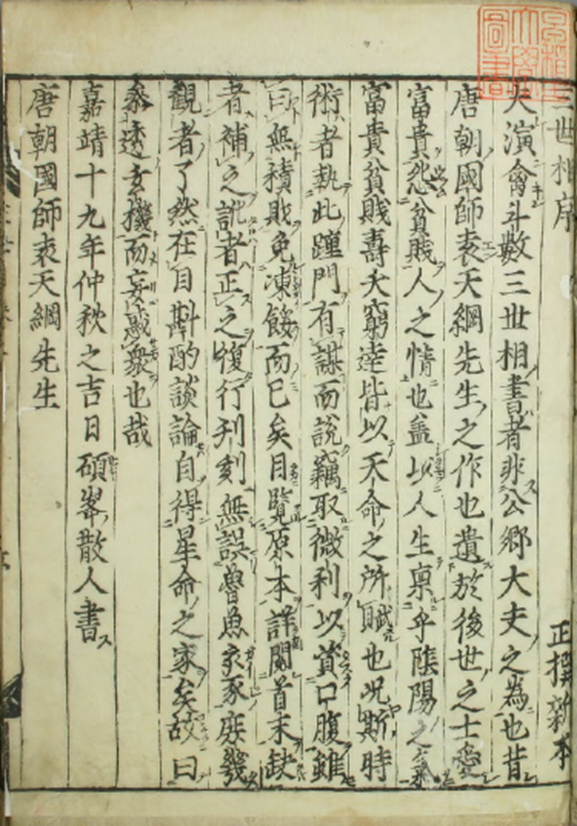 三世相序 正撰新本
夫演禽斗數三世相書者非公卿大夫之為也昔
唐朝國師袁天綱先生之作也遺於後世之士愛
富貴恐貧賤人之情也盖以人生稟乎陰陽之氣
富貴貧賤壽夭窮達皆以天命之所賦也况斯時
術者執此踵門有謀而說竊取微利以資口腹雖
曰無積敗免凍餒而已矣目覽原本詳閱首末缺
者補之訛者正之復行刋刻無誤魯魚家豕庶幾
觀者了然在目斟酌談論自得星命之家矣故曰
透玄機而妄惑衆也哉
嘉靖十九年仲秋之吉日碩峯散人書
唐朝國師袁天綱先生